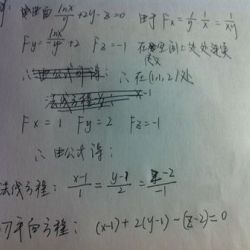 解: 曲面 lnx/y +2y-z=0 由于 Fx=1/y · 1/x = 1/xy
Fy=lnx/y +2 Fz=-1 在
∴ 在(1,1,2)处
Fx=1 Fy=2 Fz=-1
∴ 由公式得:
法线方程: x-1/1 = y-1/2 = z-2/-1
切平面方程: (x-1)+2(y-1)-(z-2)=0